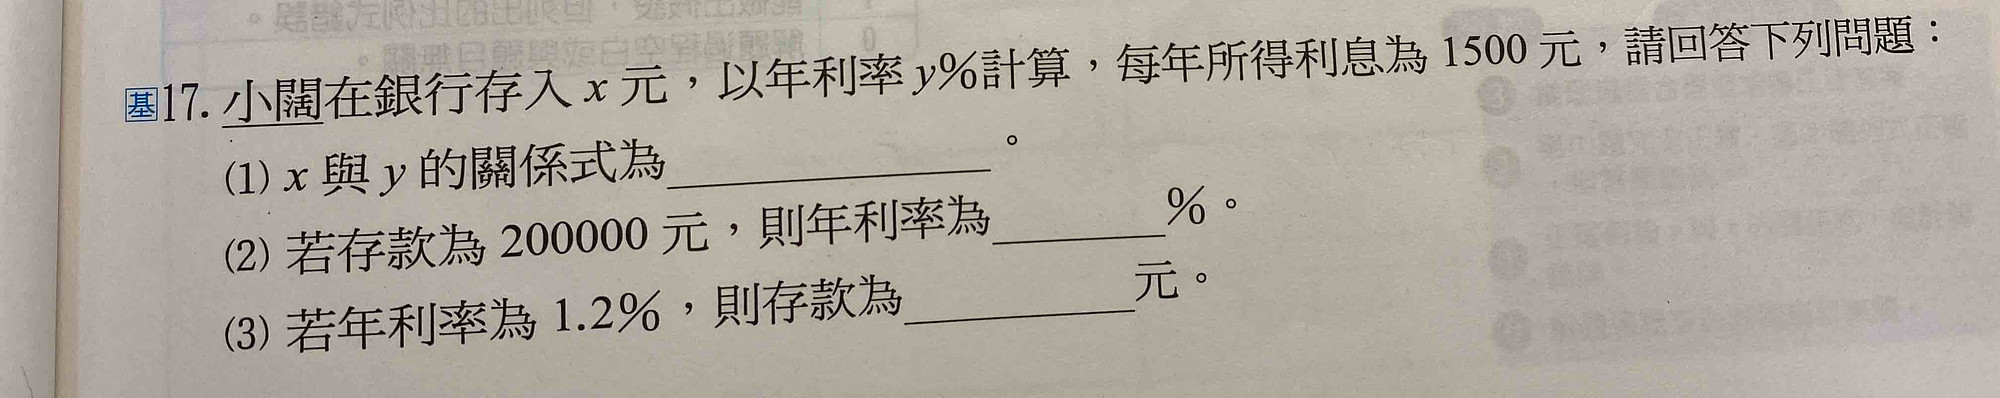 基17. 小闊在銀行存入 x 元，以年利率 y%計算，每年所得利息為 1500 元，請回答下列問題：
(1) x 與 y 的關係式為＿＿＿＿＿＿。
(2) 若存款為 200000 元，則年利率為＿＿＿＿%。
(3) 若年利率為 1.2%，則存款為＿＿＿＿元。